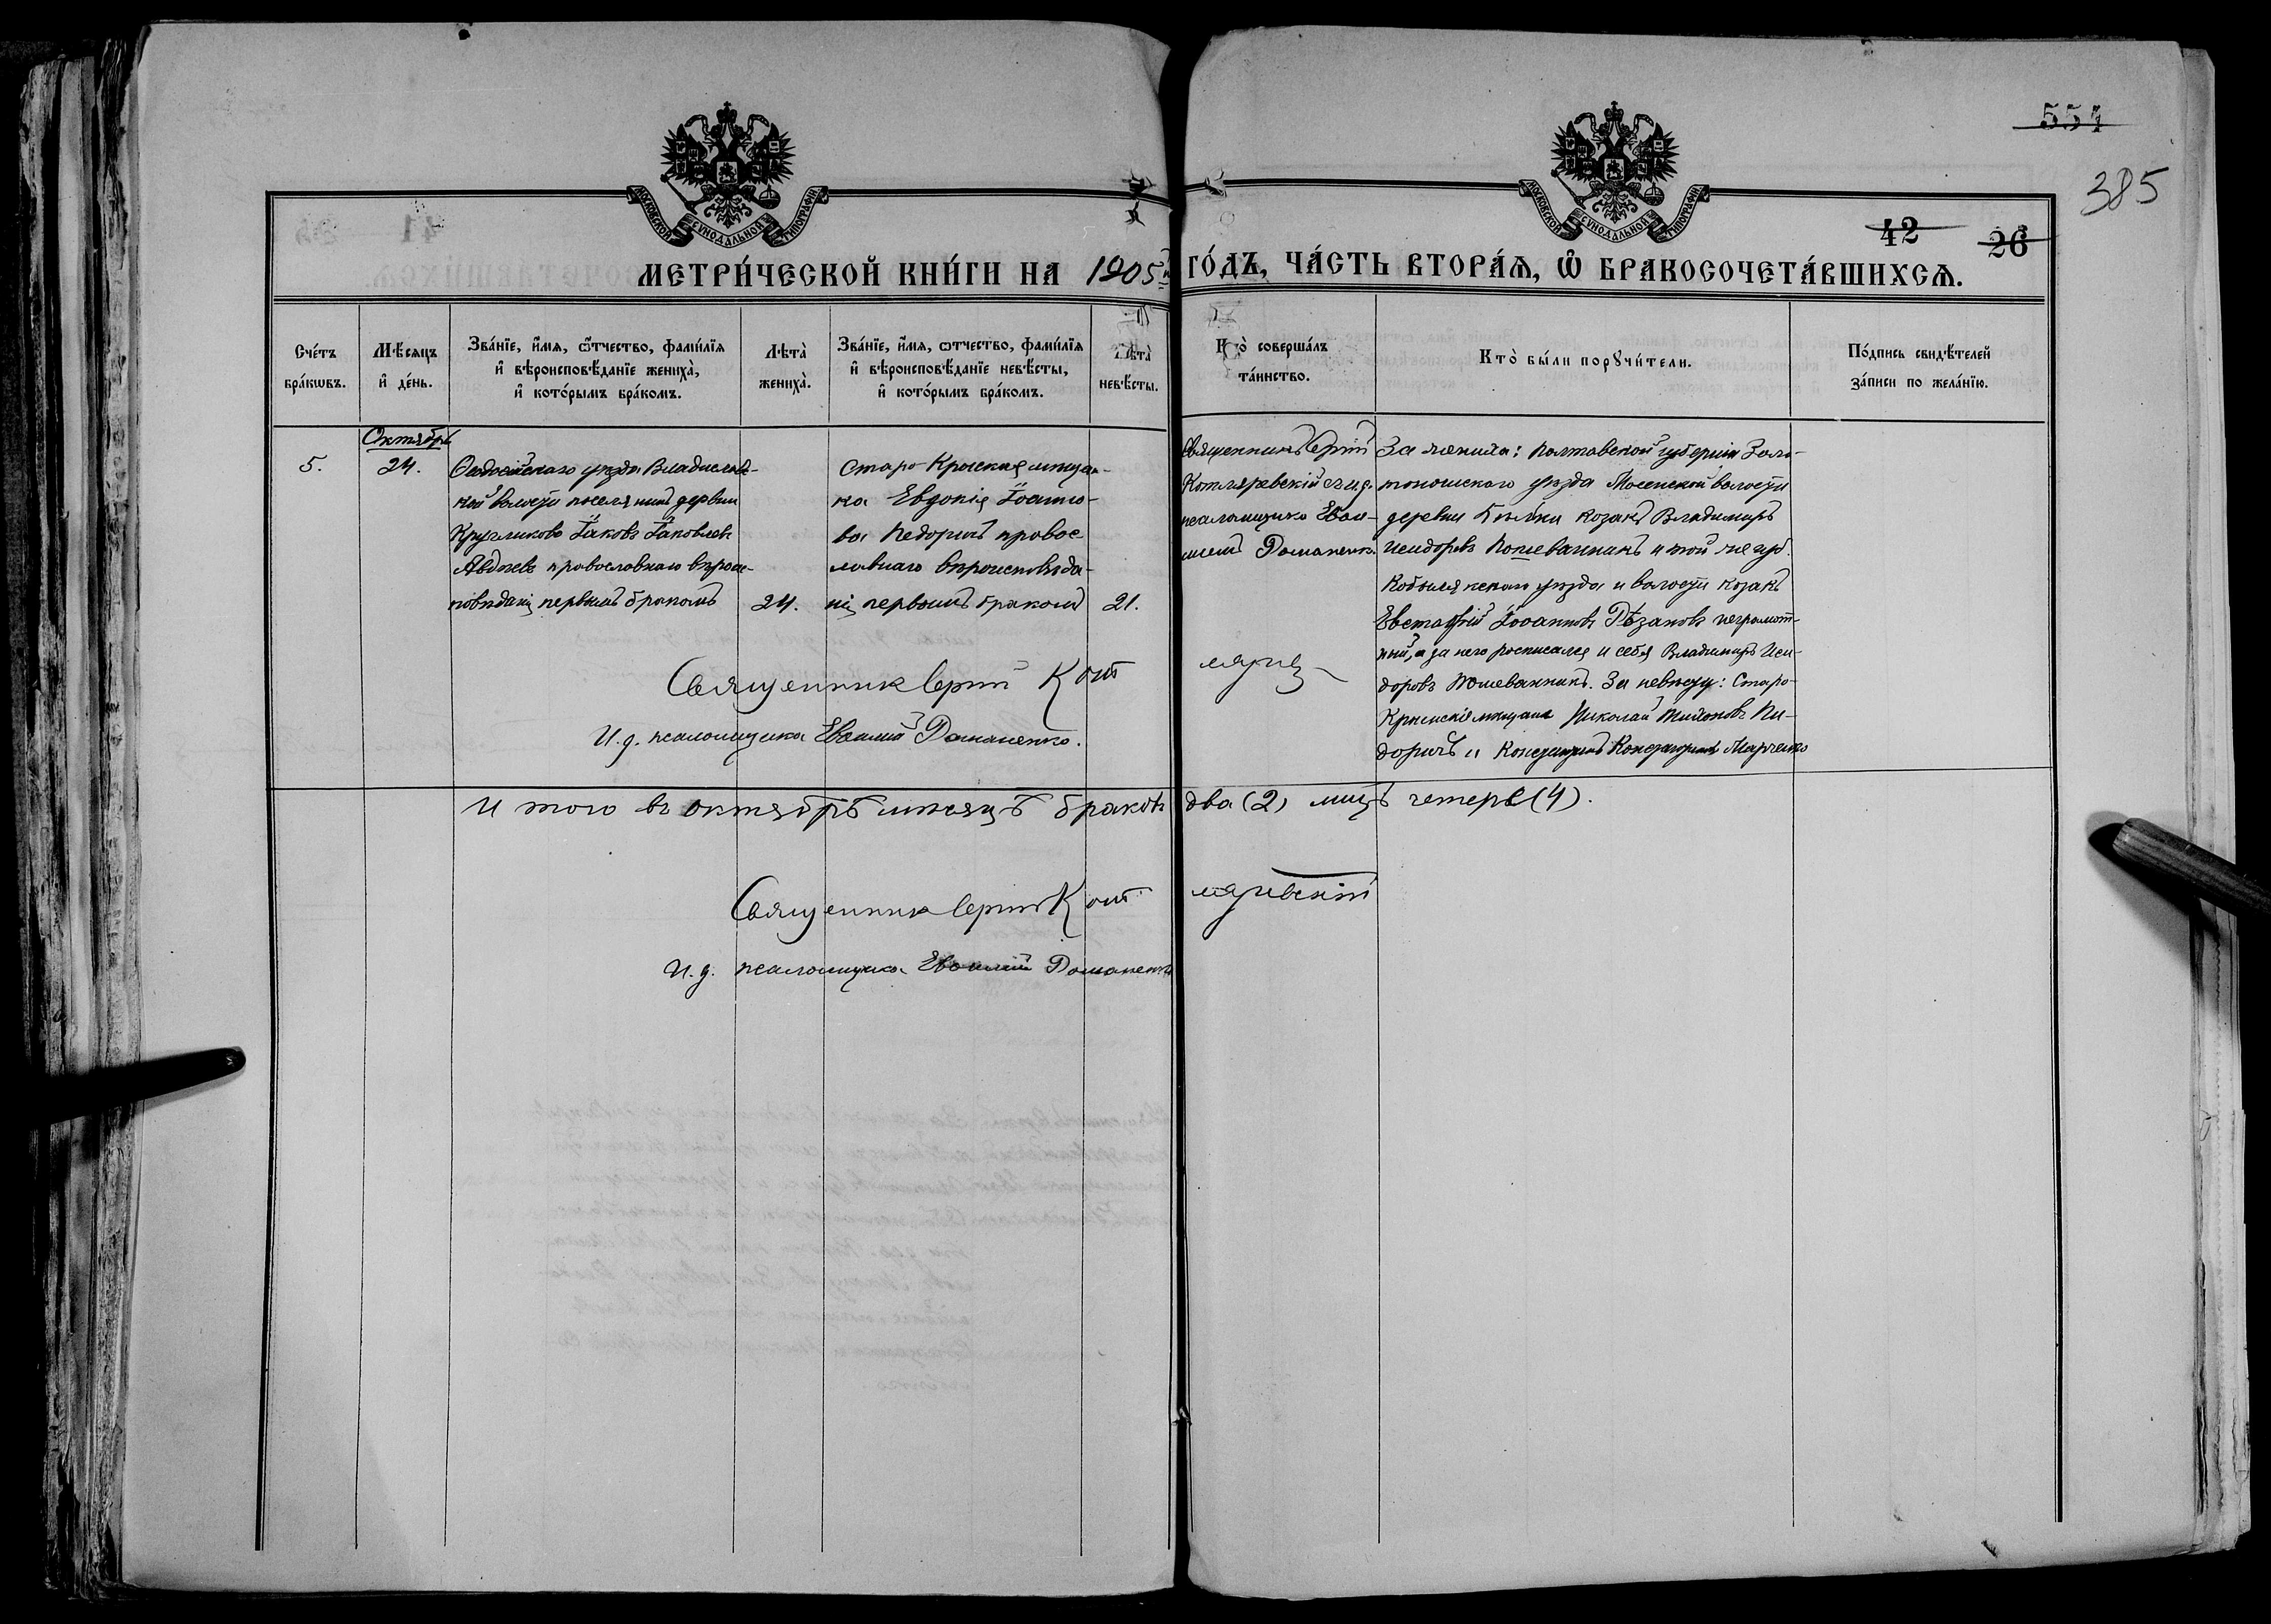 554
385
42
26
МОСКОВСКОЙ СѴНОДАЛЬНОЙ ТИПОГРАФІИ
МОСКОВСКОЙ СѴНОДАЛЬНОЙ ТИПОГРАФІИ
МЕТРИ́ЧЕСКОЙ КНИ́ГИ НА 1905й ГО́ДЪ, ЧА́СТЬ ВТОРА́Ѧ, Ѽ БРАКОСОЧЕТА́ВШИХСѦ.
Сче́тъ
бра́кѡвъ.
Мѣ́сѧцъ
и҆ де́нь.
Зва́нїе, и҆́мѧ, ѻ҆́тчество, фами́лїѧ
и҆ вѣроисповѣ́данїе жениха̀,
и҆ кото́рымъ бра́комъ.
Лѣта̀
жениха̀.
Зва́нїе, и҆́мѧ, ѻ҆́тчество, фами́лїѧ
и҆ вѣроисповѣ́данїе невѣ́сты,
и҆ кото́рымъ бра́комъ.
Лѣта̀
невѣ́сты.
Кто̀ соверша́лъ
та́инство.
Кто̀ бы́ли порꙋчи́тели.
По́дпись свидѣ́телей
за́писи по жела́нїю.
5.
Октябрь
24.
Ѳеодосійскаго уѣзда Владислав-
кой волости поселянинъ деревни
Кругликово Іаковъ Іаковлевъ
Авдѣевъ православнаго вѣроис-
повѣданія первымъ бракомъ
24.
Старо-Крымская мѣщан-
ка Евдокія Іоанно-
ва Педоричъ правос
лавнаго вѣроисповѣда-
нія первымъ бракомъ
21.
Священникъ Сергій
Котляревскій съ и.д.
псаломщика Евѳи-
міемъ Романенко.
За жениха: Полтавской губерніи Золо-
тоношскаго уѣзда волости
деревни козакъ Владимиръ
Исидоровъ и той же губ.
Кобелякскаго уѣзда и волости козакъ
Евстафій Іоанновъ Рѣзановъ неграмот-
ный, а за него росписался и себя Владимиръ Иси-
доровъ За невѣсту: Старо-
Крымскіе мѣщане Николай Пи-
доричъ и Константинъ Константиновъ Марченко
Священникъ Сергій Кот ляревскій
И.д. псаломщика Евѳимій Романенко.
И того въ октябрѣ мѣсяцѣ браковъ два (2) лицъ четыре (4).
Священникъ Сергій Кот ляревскій
И.д. псаломщика Евѳимій Романенко